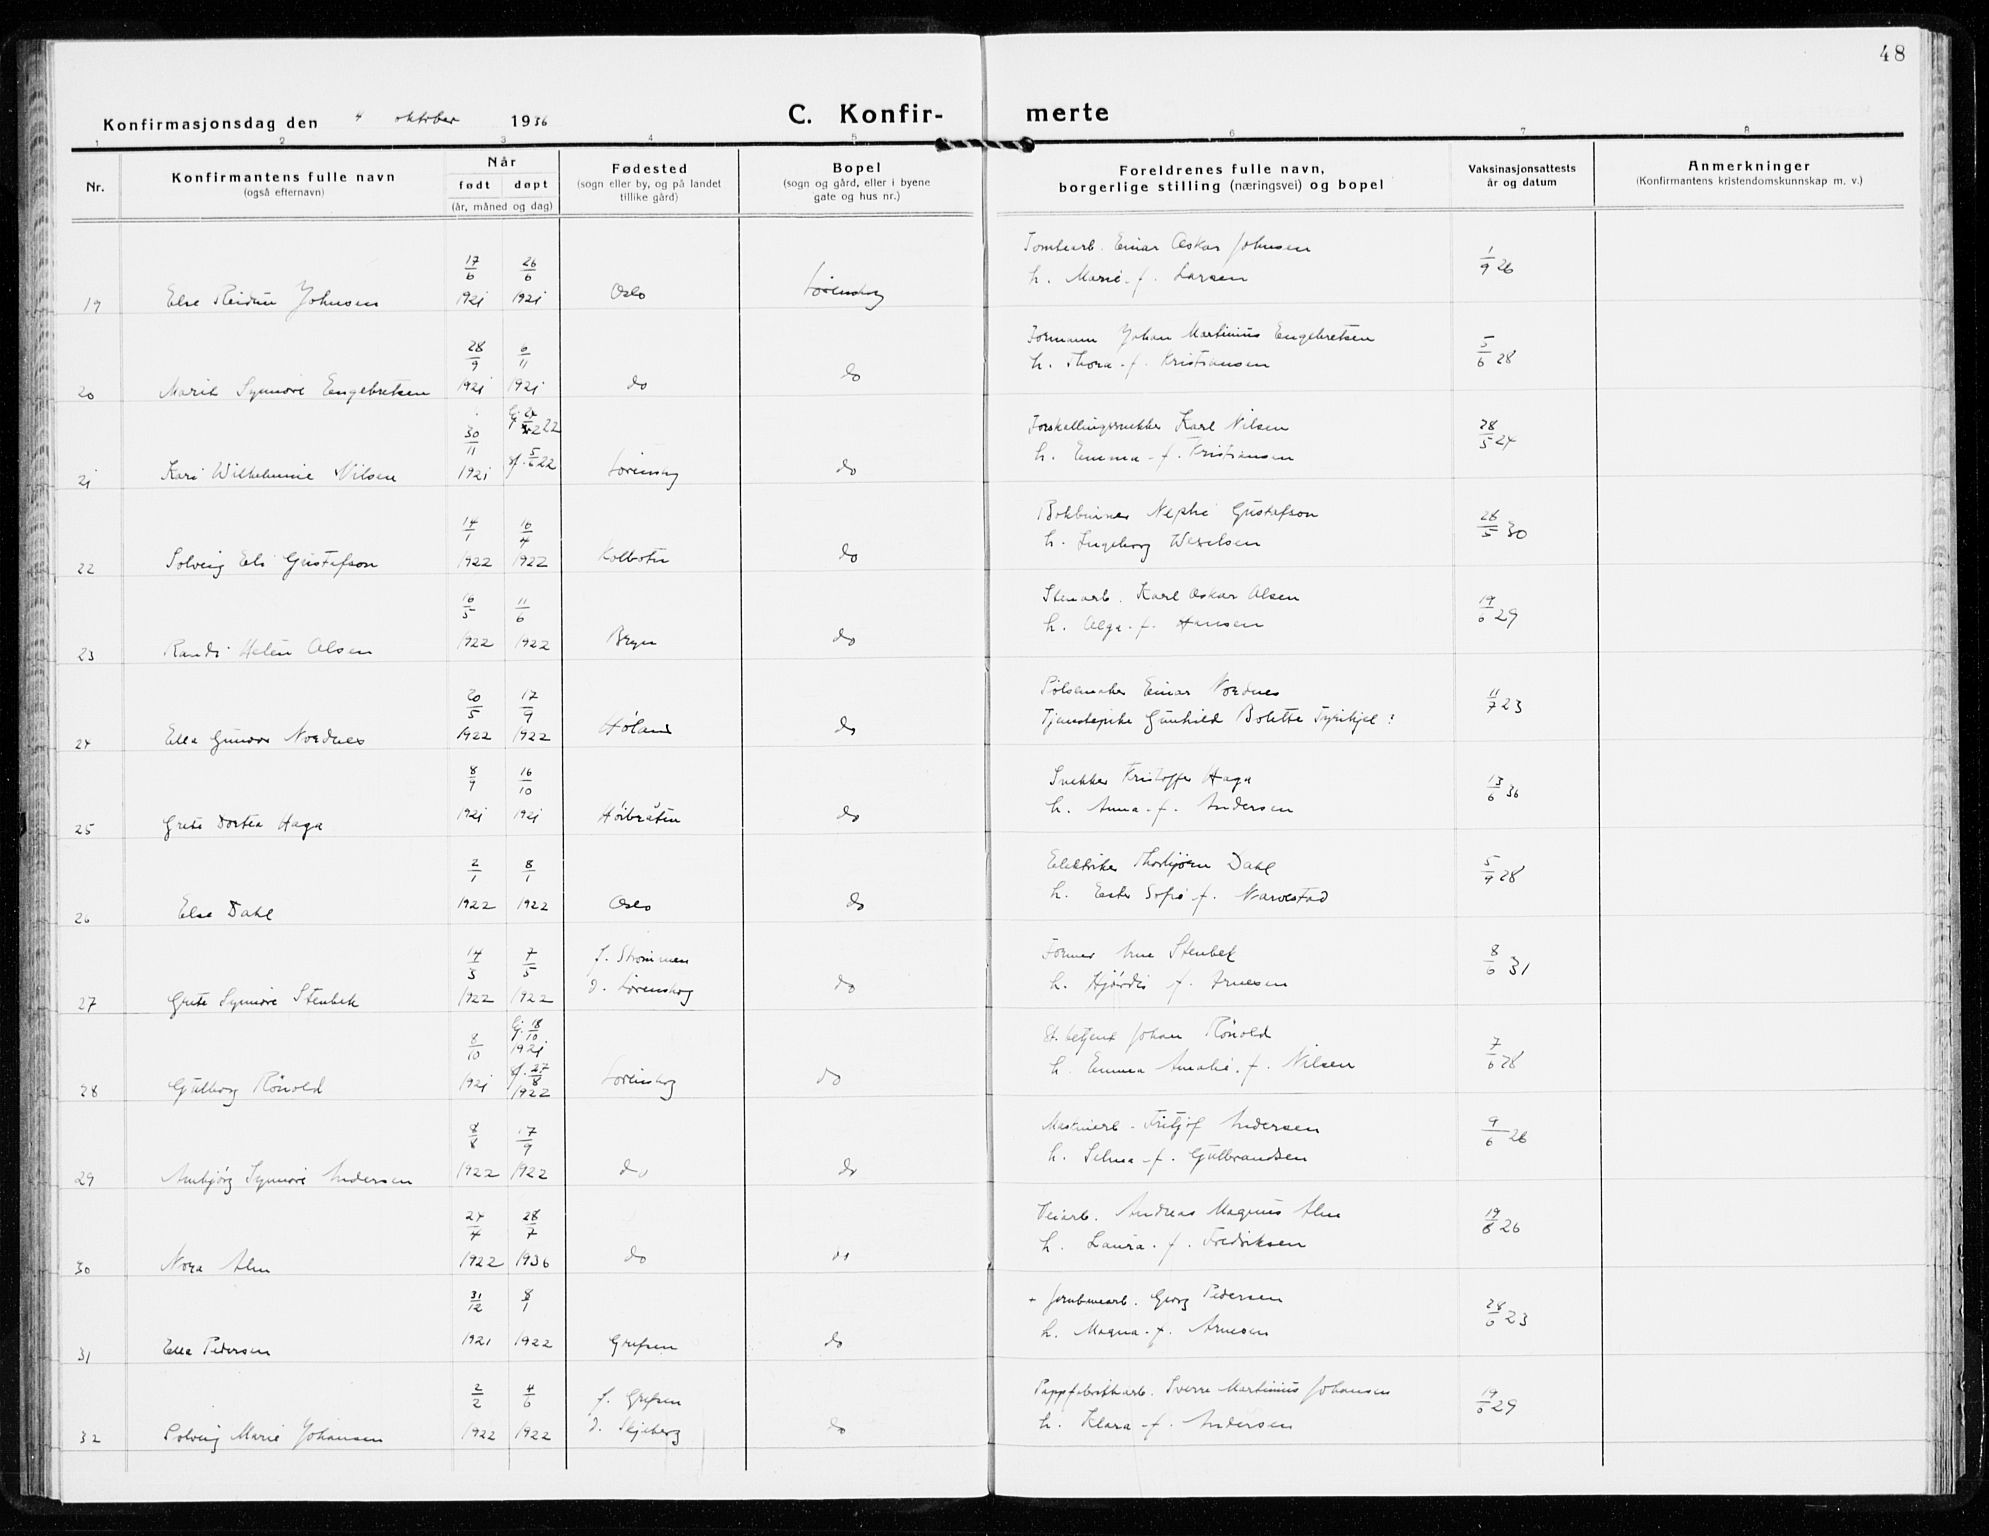 48
Konfirmasjonsdag den 4 oktober 1936
C. Konfir-merte
1 2 3 4 5 6 7 8
Nr.
Konfirmantens fulle navn
(også efternavn)
Når
født døpt
(år, måned og dag)
Fødested
(sogn eller by, og på landet
tillike gård)
Bopel
(sogn og gård, eller i byene
gate og hus nr.)
Foreldrenes fulle navn,
borgerlige stilling (næringsvei) og bopel
Vaksinasjonsattests
år og datum
Anmerkninger
(Konfirmantens kristendomskunnskap m. v.)
17/6 26/6 Tomtearb. Einar Oskar Johnsen 1/9 26
19 Else Reidun Johnsen 1921 1921 Oslo Lørenskog h. Marie f. Larsen
28/9 6/11 Formann Johan Martinius Engebretsen 5/6 28
20 Marit Synnøve Engebretsen 1921 1921 do do h. Thora f. Kristiansen
30/11 Karl Nilsen 28/5 24
21 Kari Wilhelmine Nilsen 1921 5/6 22 Lørenskog do h. Emma f. Kristiansen
14/1 16/4 Bokbinner Nephi Gustafson 28/5 30
22 Solveig Eli Gustafson 1922 1922 Kolbotn do h. Ingeborg
16/5 11/6 Stenarb. Karl Oskar Olsen 19/6 29
23 Randi Helen Olsen 1922 1922 Bryn do h. Olga f. Hansen
20/5 17/9 Pølsemaker Einar Nordnes 11/7 23
24 Ella Gunvor Nordnes 1922 1922 Høland do Tjenestepike Gunhild Bolette
8/9 16/10 Snekker Kristoffer Haga 13/6 36
25 Grete Dortea Haga 1921 1921 Høibråten do h. Anna f. Andersen
2/1 8/1 Elektriker Thorbjørn Dahl 5/9 28
26 Else Dahl 1922 1922 Oslo do h. Ester Sofie f. Narvestad
14/3 7/5 f. Strømmen Former Arne Stenbek 8/6 31
27 Grete Synnøve Stenbek 1922 1922 d. Lørenskog do h. Hjørdis f. Arnesen
8/10 hj. 18/10 1921 St. betjent Johan Rønold 7/6 28
28 Gulborg Rønold 1921 27/8 1922 Lørenskog do h. Emma Amalie f. Nilsen
8/8 17/9 Maskinarb. Fritjof Andersen 9/6 26
29 Annbjørg Synnøve Andersen 1922 1922 do do h. Selma f. Gulbrandsen
24/4 28/7 Veiarb. Andreas Magnus Alm 19/8 26
30 Nora Alm 1922 1936 do do h. Laura f. Fredriksen
31/12 8/1 + Jernbanearb. Georg Pedersen 28/6 23
31 Ella Pedersen 1921 1922 Grefsen do h. Magna f. Arnesen
2/2 4/6 f. Grefsen Pappfabrikkarb. Sverre Martinius Johansen 19/6 29
32 Solveig Marie Johansen 1922 1922 d. Skjeberg do h. Klara f. Andersen